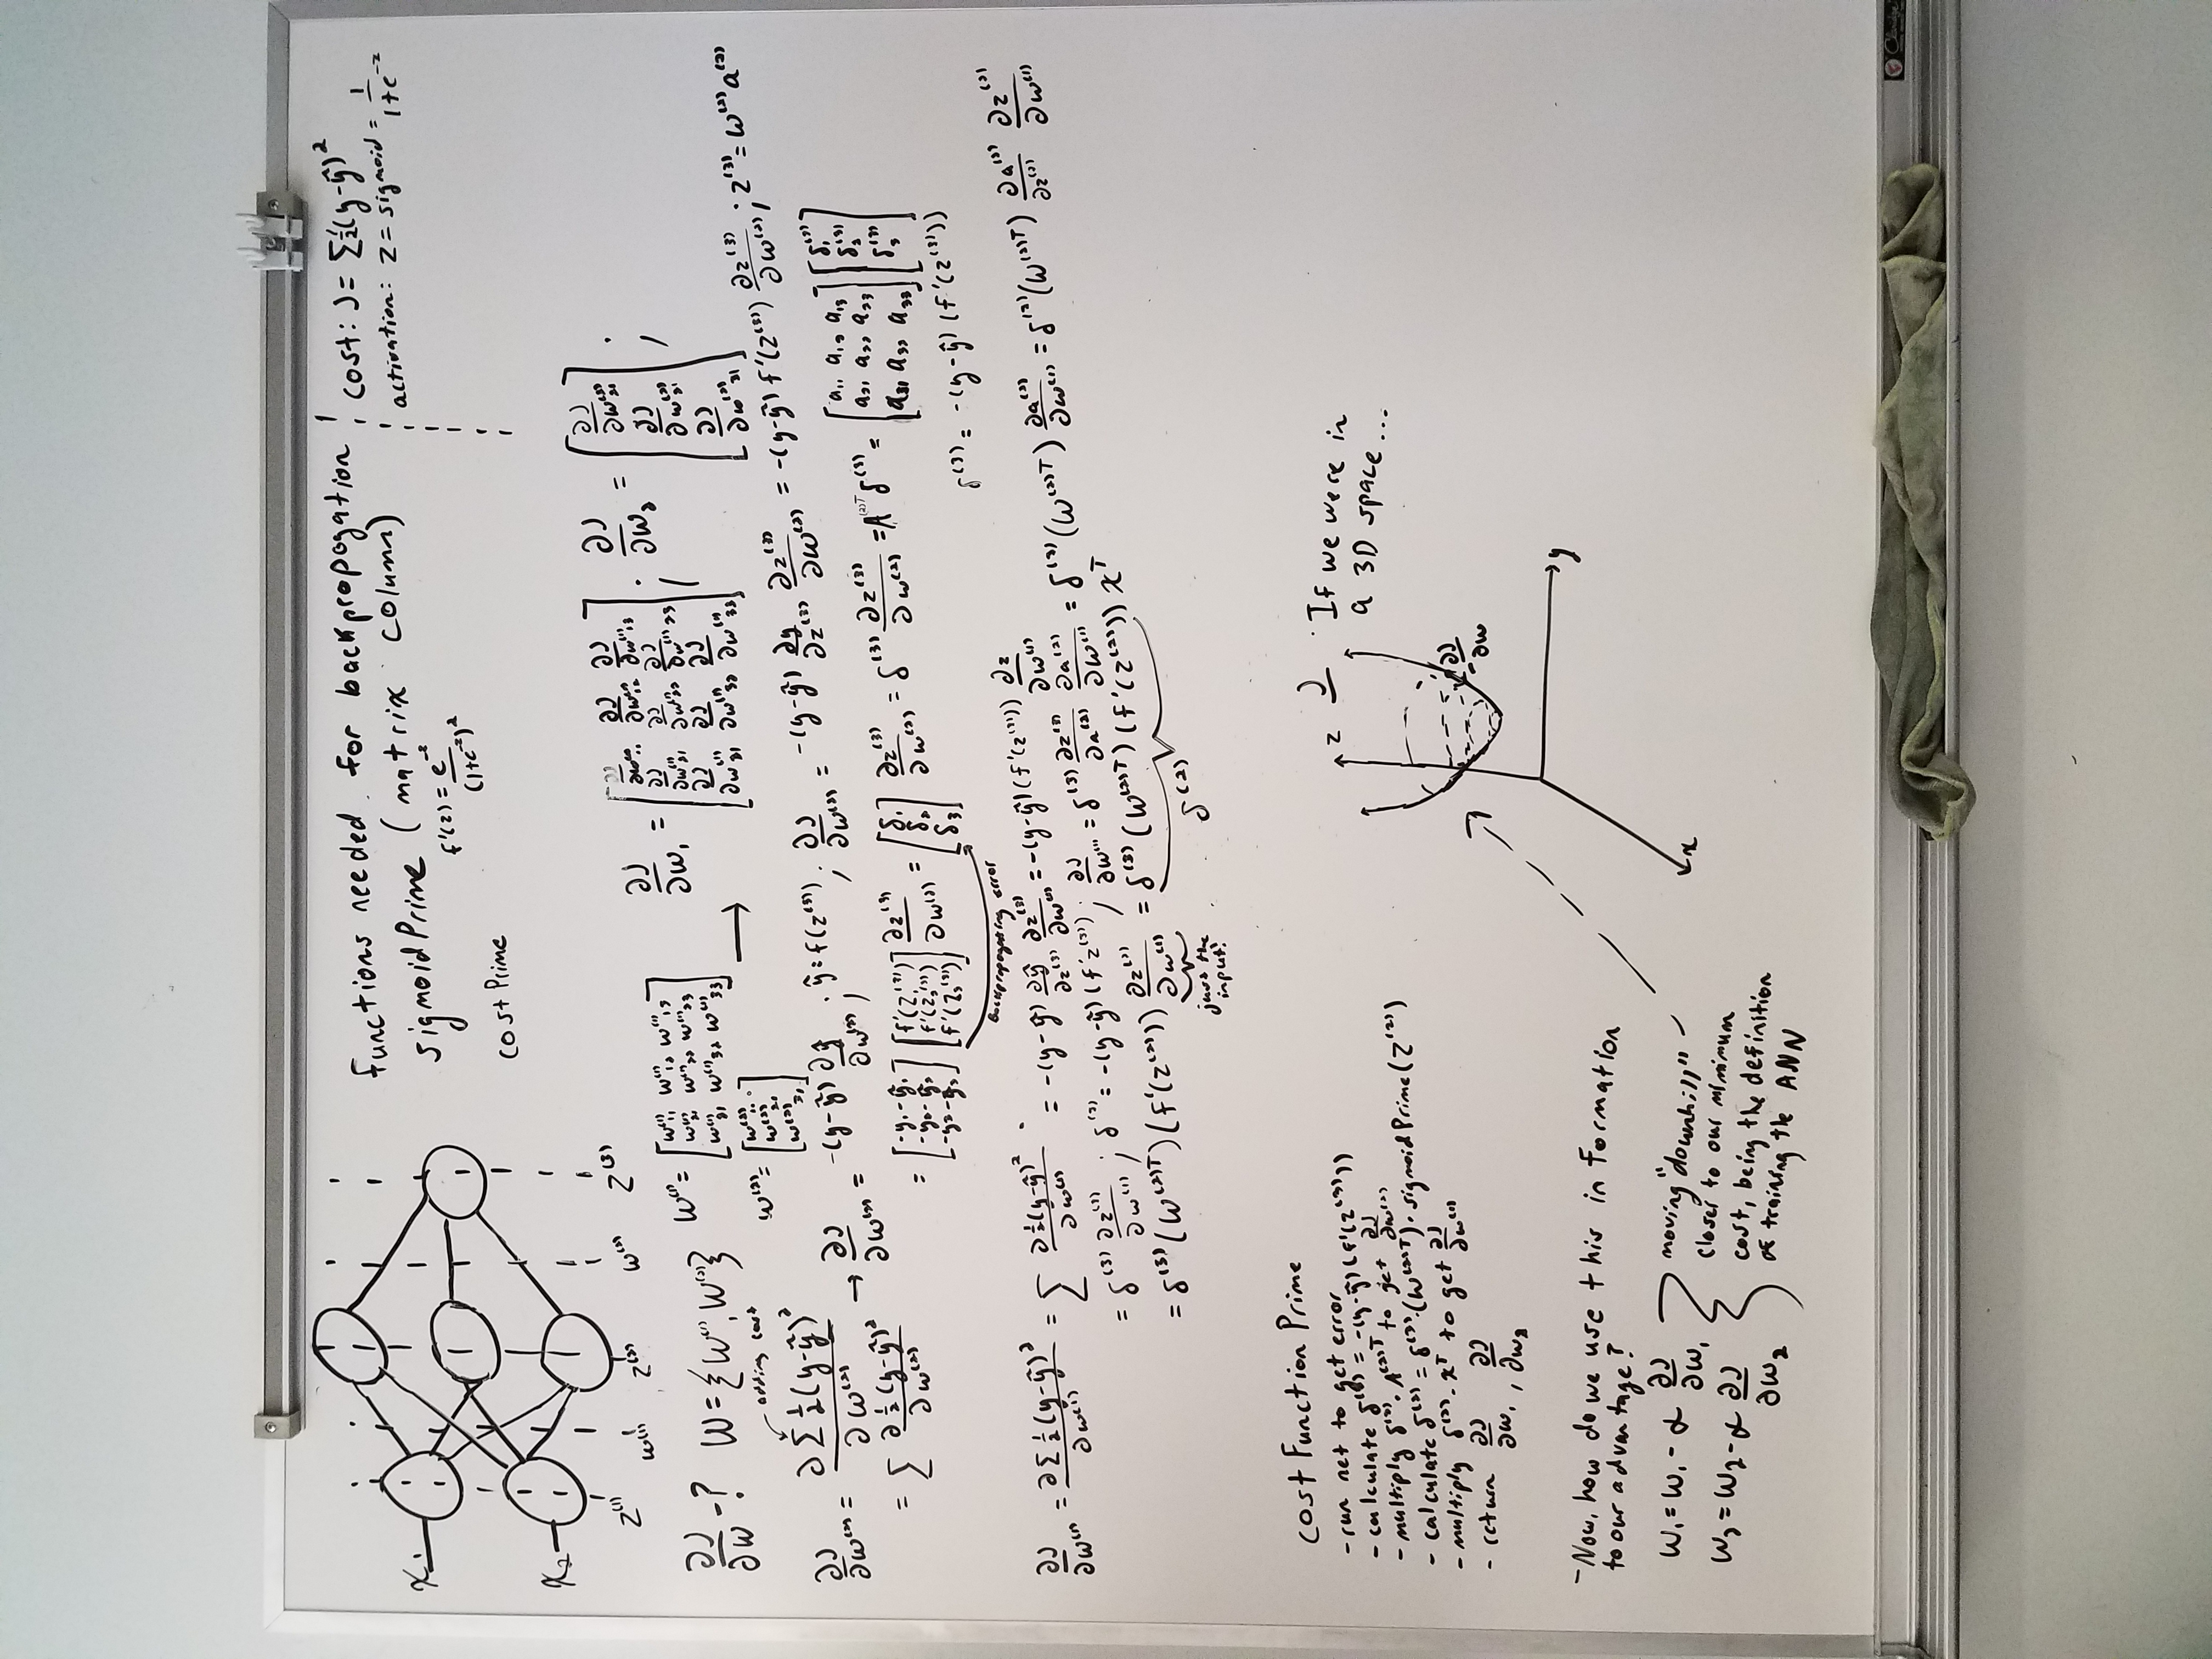 Functions needed for backpropogation
sigmoidPrime (matrix column)
f'(z) = e^-z / (1+e^-z)^2
cost Prime
cost: J = Σ½(y-ŷ)^2
activation: z = sigmoid = 1 / 1+e^-z
x₁
x₂
z^(1) w^(1) z^(2) w^(2) z^(3)
∂J/∂W -? W = {W^(1), W^(2)}
W^(1) = [w^(1)11 w^(1)12 w^(1)13
w^(1)21 w^(1)22 w^(1)23
w^(1)31 w^(1)32 w^(1)33]
w^(2) = [w^(2)11
w^(2)21
w^(2)31]
∂J/∂w₁ = [∂J/∂w^(1)11 ∂J/∂w^(1)12 ∂J/∂w^(1)13
∂J/∂w^(1)21 ∂J/∂w^(1)22 ∂J/∂w^(1)23
∂J/∂w^(1)31 ∂J/∂w^(1)32 ∂J/∂w^(1)33] ;
∂J/∂w₂ = [∂J/∂w^(2)21
∂J/∂w^(2)21
∂J/∂w^(2)31] ;
adding cost
∂J/∂w^(2) = ∂Σ½(y-ŷ)^2 / ∂w^(2) → ∂J/∂w^(2) = -(y-ŷ) ∂ŷ/∂w^(2) ; ŷ = f(z^(3)) ; ∂J/∂w^(2) = -(y-ŷ) ∂y/∂z^(3) ∂z^(3)/∂w^(2) = -(y-ŷ) f'(z^(3)) ∂z^(3)/∂w^(2) ; z^(3) = w^(2) a^(2)
= Σ ∂½(y-ŷ)^2 / ∂w^(2)
= [-y₁-ŷ₁ -y₂-ŷ₂ -y₃-ŷ₃] [f'(z₁^(3)) f'(z₂^(3)) f'(z₃^(3))] ∂z^(3)/∂w^(2) = [δ₁ δ₂ δ₃] ∂z^(3)/∂w^(2) = δ^(3) ∂z^(3)/∂w^(2) = A^(2)T δ^(3) = [a11 a12 a13 a21 a22 a23 a31 a32 a33] [δ₁^(3) δ₂^(3) δ₃^(3)]
Backpropagating error
δ^(3) = -(y-ŷ)(f'(z^(3)))
∂J/∂w^(1) = ∂Σ½(y-ŷ)^2 / ∂w^(1) = Σ ∂½(y-ŷ)^2 / ∂w^(1) = -(y-ŷ) ∂ŷ/∂z^(3) ∂z^(3)/∂w^(1) = -(y-ŷ)(f'(z^(3))) ∂z/∂w^(1)
= δ^(3) ∂z^(3)/∂w^(1) ; δ^(3) = -(y-ŷ)(f'z^(3)) ; ∂J/∂w^(1) = δ^(3) ∂z^(3)/∂a^(2) ∂a^(2)/∂w^(1) = δ^(3) (w^(2)T) ∂a^(2)/∂w^(1) = δ^(3) (w^(2)T) ∂a^(2)/∂z^(2) ∂z^(2)/∂w^(1)
= δ^(3) (w^(2)T)(f'(z^(2))) ∂z^(2)/∂w^(1) = δ^(3) (w^(2)T)(f'(z^(2))) x^T
just the
input!
δ^(2)
Cost Function Prime
- run net to get error
- calculate δ^(3) = -(y-ŷ)(f'(z^(3)))
- multiply δ^(3) · A^(2)T to get ∂J/∂w^(2)
- calculate δ^(2) = δ^(3) · (w^(2)T) · sigmoidPrime(z^(2))
- multiply δ^(2) · x^T to get ∂J/∂w^(1)
- return ∂J/∂w₁ , ∂J/∂w₂
J
If we were in
a 3D space...
z
-∂J/∂w
y
x
- Now, how do we use this information
to our advantage?
W₁ = W₁ - α ∂J/∂W₁
W₂ = W₂ - α ∂J/∂W₂
moving "downhill"
closer to our minimum
cost, being the definition
of training the ANN
Claridge